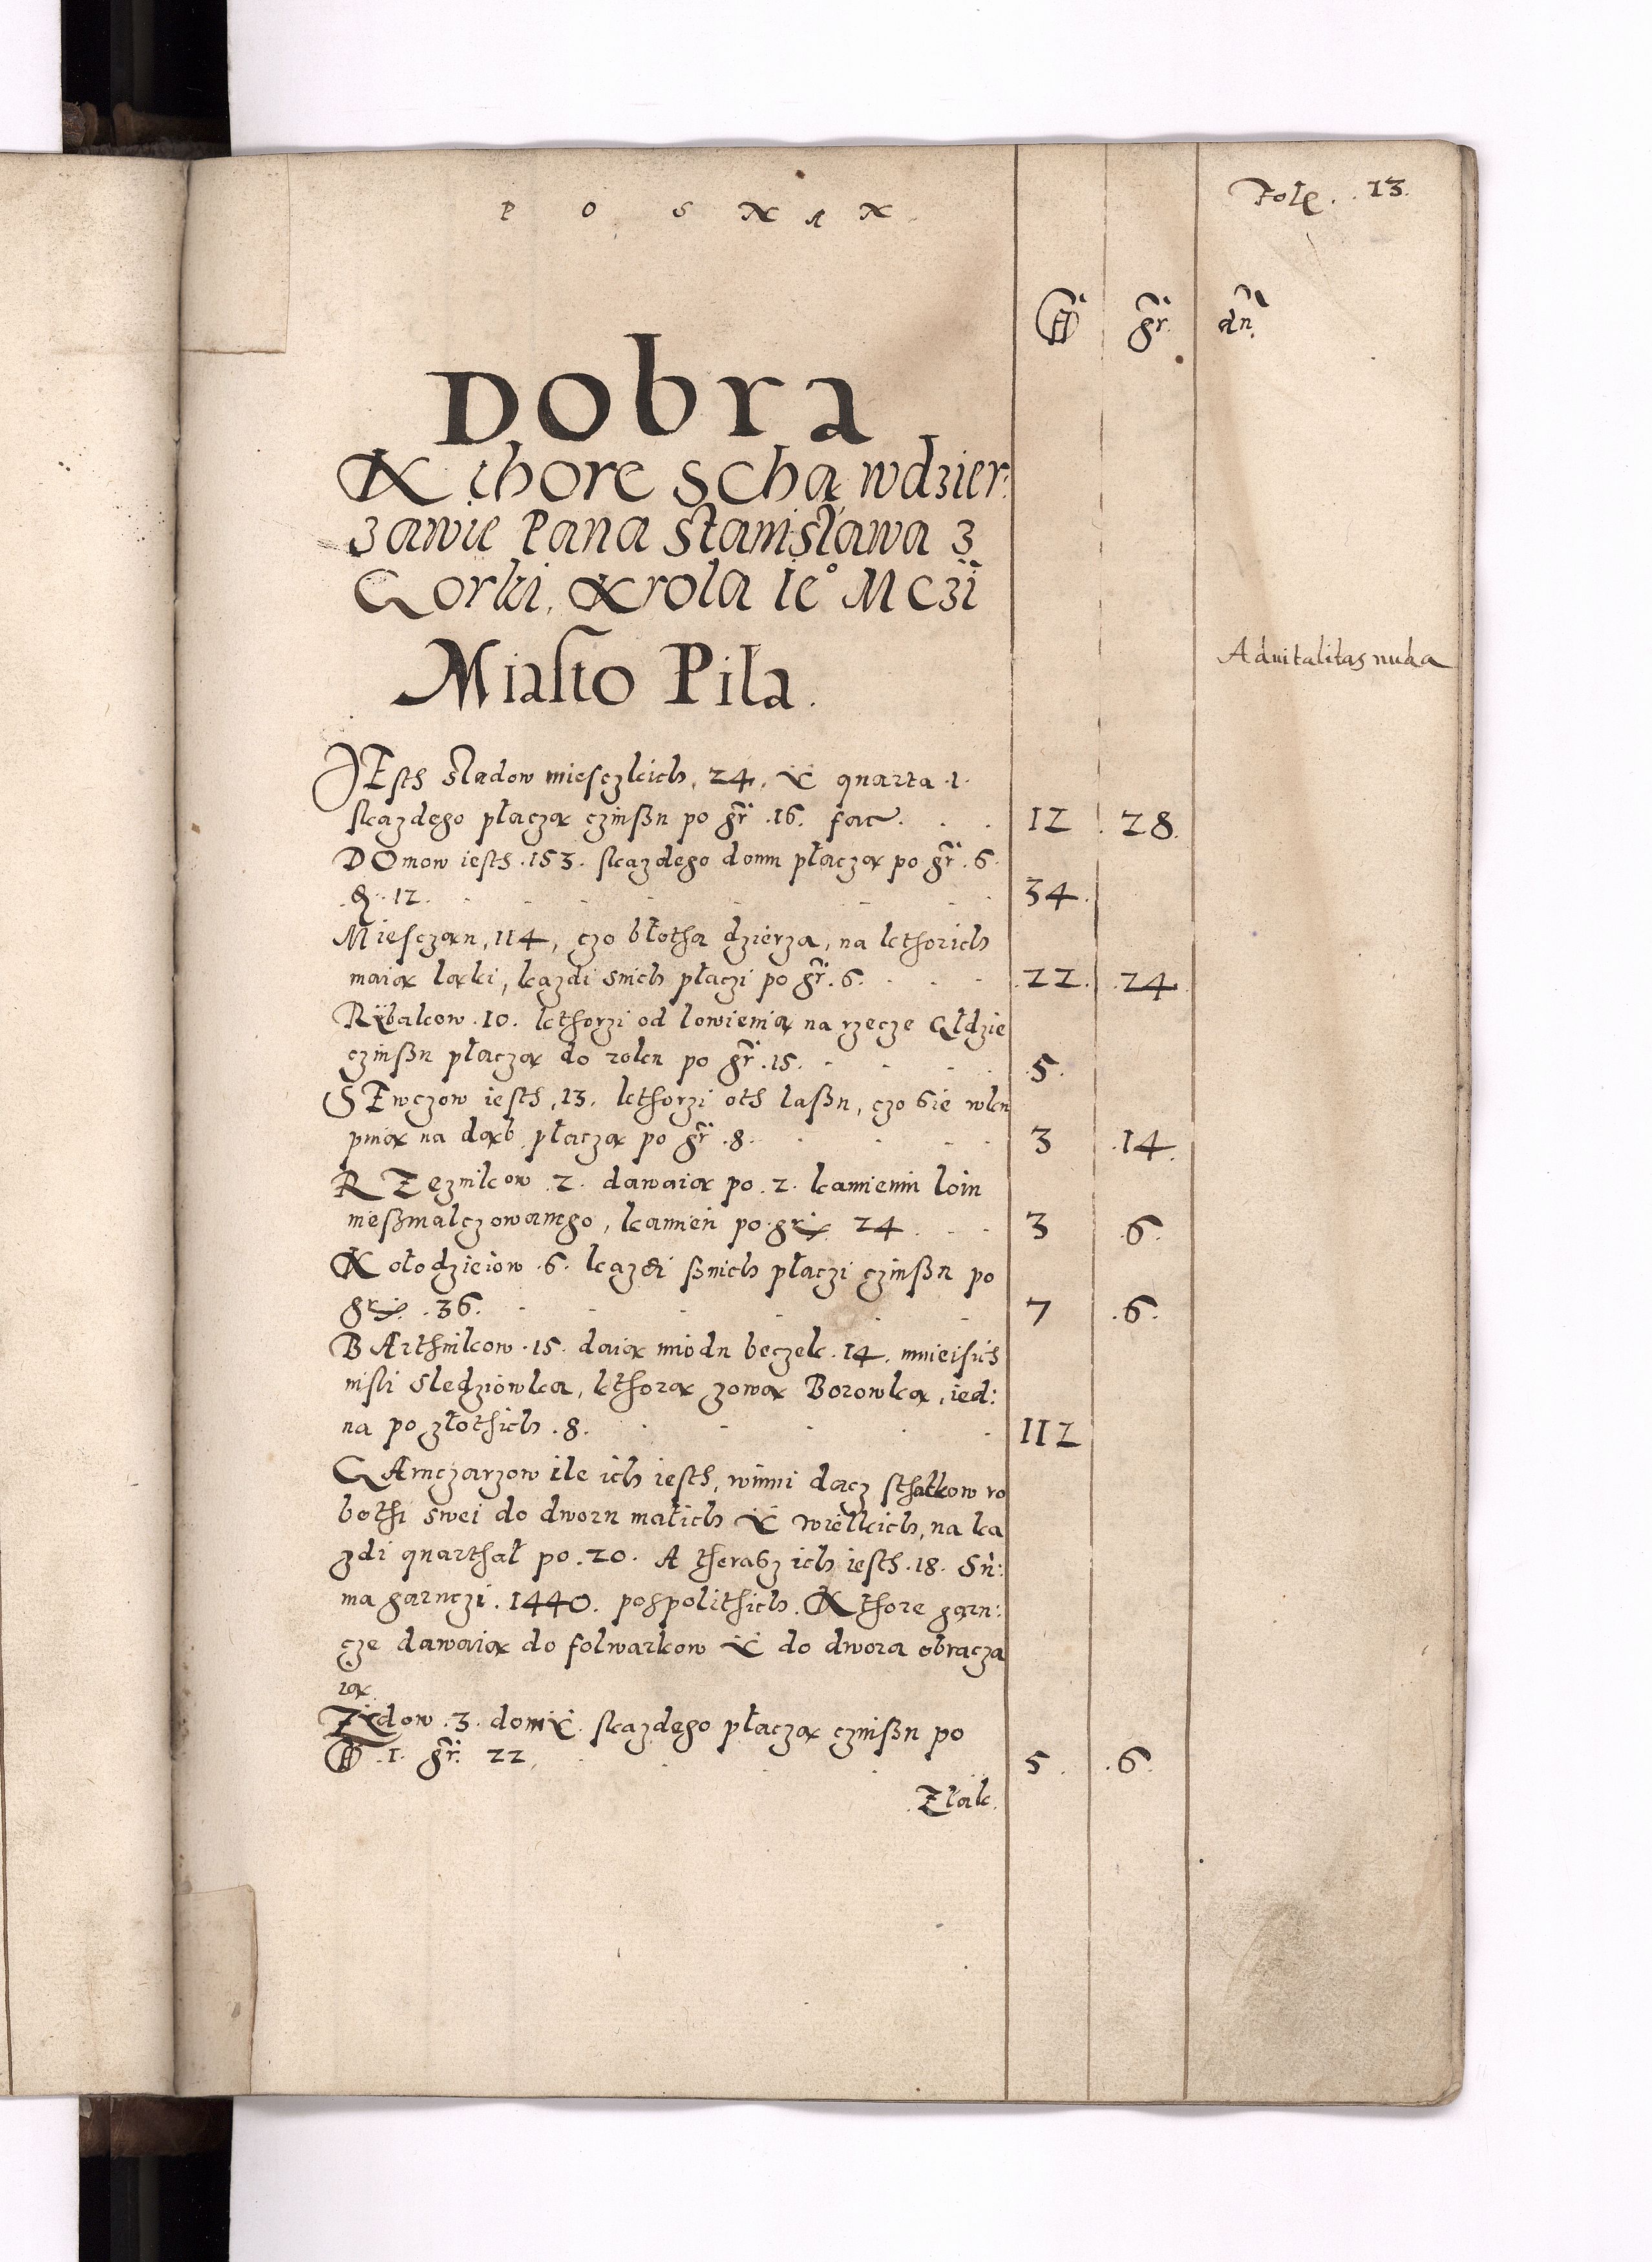 P O S N A N
Fole. . 13.
fl gr. dn.
Dobra
Kthore Scha wdzier:
zawie Pana Stanisława z
Gorki, Krola Ie° Mczi
Miasto Pila.
Aduitalitas nuda
JEsth sladow miesczkich, 24, Y quarta .1.
skazdego płaczą czinssu po gr .16. fac. . . 12 . 28.
DOmow iesth .153. skazdego domu płaczą po gr .6.
.d. .12. 34.
Miesczan, 114, czo błotha dzierza, na kthorich
maią łąki, kazdi snich płaczi po gr. 6. .22. .24.
Rÿbakow .10. kthorzi od lowienia na rzecze Głdzie
czinssu płaczą do roku po gr .15. .5.
SEwczow iesth, 13. kthorzi oth lassu, czo sie wku
puią na dąb płaczą po gr .8. 3 .14.
RZeznikow .2. dawaią po .2. kamieniu łoiu
niessmalczowanego, kamień po grx 24 . . . 3 .6.
Kołodzieiow .6. kazdi ssnich płaczi czinssu po
grx. .36. 7 .6.
BArthnikow .15. daią miodu beczek .14. mnieisich
nisli Sledziowka, kthorą zową Borowka, ied:
na po złothich .8. 112
GArnczarzow ile ich iesth, winni dacz sthatkow ro
bothi swei do dworu małich Y wielkich, na ka
zdi quarthał po .20. A therasz ich iesth .18. Su:
ma garnczi .1440. pospolithich. Kthore garn:
cze dawaią do folwarkow Y do dwora obracza
ią
Zÿdow .3. domÿ. skazdego płaczą czinssu po
fl .1. gr. 22, 5 . .6.
Złąk.